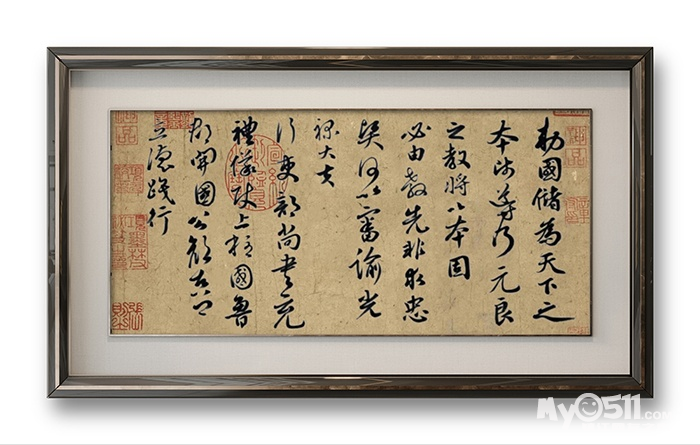 勑國儲為天下之
本師導乃元良
之教將以本固
必由教先非求忠
賢何以審諭光
祿大夫
行吏部尚書充
禮儀使上柱國魯
郡開國公顏真卿
立德踐行
My0511.com